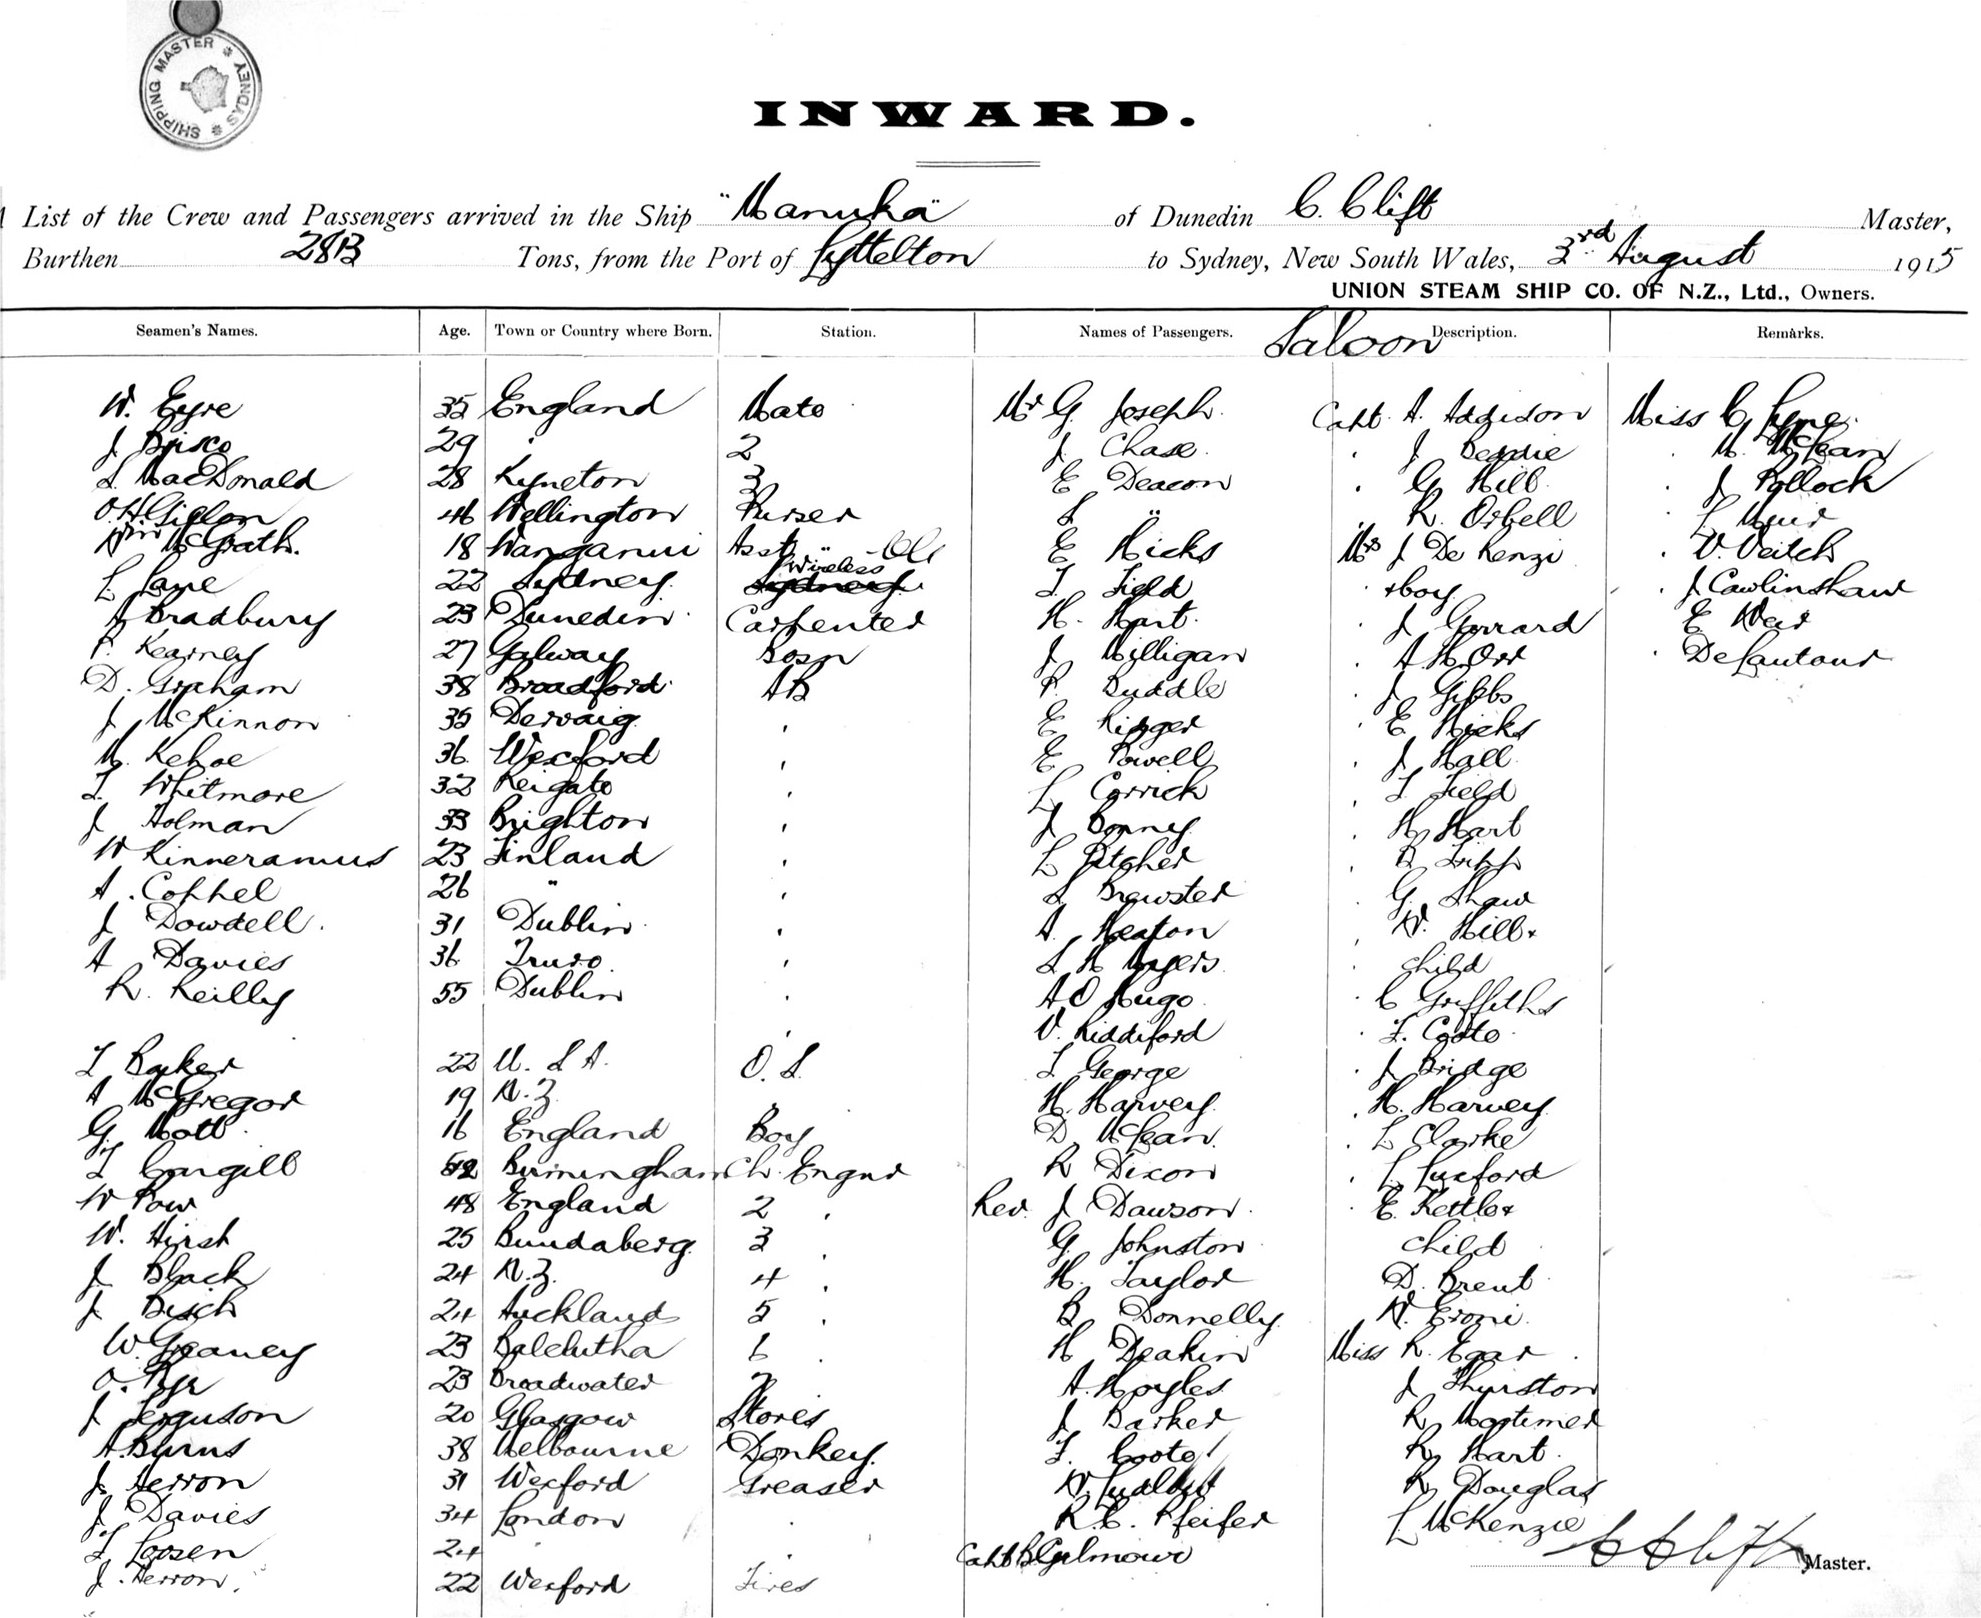 SHIPPING MASTER * SYDNEY *
INWARD.
List of the Crew and Passengers arrived in the Ship "Manuka" of Dunedin C. Clift Master,
Burthen Tons, from the Port of Lyttelton to Sydney, New South Wales, 3rd August 1915
UNION STEAM SHIP CO. OF N.Z., Ltd., Owners.
Seamen's Names. Age. Town or Country where Born. Station. Names of Passengers. Saloon Description. Remarks.
W. Eyre 35 England Mate Mr G. Joseph. Capt. A. Addison Miss C. Lyne.
J Brisco 29 " 2 J Chase. " J Beddie " M. McLean
S MacDonald 28 Kyneton 3 E Deacon " G Hill " J Pollock
46 Wellington Purser S " " R. Orbell " L Muir
Wm McGrath. 18 Wanganui Asst " E Hicks Mrs J De Renzi " V. Veitch
L Lane 22 Sydney. Wireless T. Field + boy " J Cawlinshaw
A Bradbury 23 Dunedin Carpenter H. Hart. " J Gerrard E Weir
P. Kearney 27 Galway Bosn J Milligan " A H Orr " De Lautour
D. Graham 38 Broadford AB P. Buddle " J Gibbs
J McKinnon 35 Dervaig " E " E Hicks
M. Kehoe 36 Wexford " E Powell " J Hall
T. Whitmore 32 Reigate " L Corrick " T Field
J Holman 33 Brighton " J Bonney " H Hart
W Kinneramus 23 Finland " L Pitcher " R Tripp
A. Coppel 26 " " S Brewster G. Shaw
J Dowdell. 31 Dublin " A. Heaton " W. Hill +
A Davies 36 Truro. " S H Myers " child
R. Reilly 55 Dublin " A O Hugo. " C Griffiths
" V. Riddiford " F. Coote
T Barker 22 U. S A. O. S. T George " J Bridge
A McGregor 19 N. Z. " H. Harvey. " H. Harvey
G. Mott 16 England Boy D. McLean. " L Clarke
T Cargill Birmingham Ch. Engnr R Dixon " L Luxford
W Pow 48 England 2 " Rev. J Dawson. " E. Kettle +
W. Hirst 25 Bundaberg 3 " G. Johnston child
J Black 24 N. Z. 4 " H. Taylor D. Brent
J Bisch 24 Auckland 5 " B Donnelly W. Eroni.
W. Greaney 23 Balclutha 6 " H Deakin Miss R. Egar
O. Pye 23 Broadwater 7 A. Hoyles J Thurston
J Ferguson 20 Glasgow Stores J Barker R Mortimer
A. Burns 38 Melbourne Donkey. F. Coote R Hart.
J Herron 31 Wexford Greaser W. R Douglas
J Davies 34 London " R. C. Pfeifer L McKenzie
T Loosen 24 " " Capt B. Gilmour C Clift Master.
J. Herron. 22 Wexford Fires